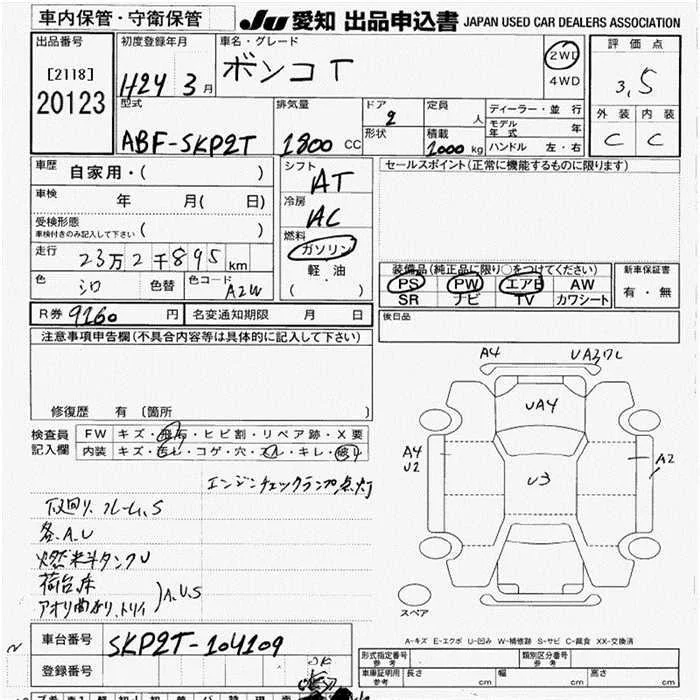 車内保管・守衛保管
JU 愛知 出品申込書 JAPAN USED CAR DEALERS ASSOCIATION
出品番号
[2118]
20123
初度登録年月
H24 3月
車名・グレード
ボンゴT
2WD
4WD
評価点
3.5
外装 内装
C C
型式
ABF-SKP2T
排気量
1800 CC
ドア
2
形状
定員
人
積載
1000 kg
ディーラー・並行
モデル年式 年
ハンドル 左・右
車歴 自家用・( )
車検 年 月( 日)
受検形態
車検付きのみ記入して下さい ( )
走行 23万2千895km
色 シロ 色替
色コード A2W
シフト
AT
冷房
AC
燃料
ガソリン
軽油
( )
セールスポイント(正常に機能するものに限ります)
装備品(純正品に限り○をつけてください)
PS PW エアB AW
SR ナビ TV カワシート
新車保証書
有・無
後日品
R券 9260円 名変通知期限 月 日
注意事項申告欄(不具合内容等は具体的に記入して下さい)
修復歴 有 〔箇所 〕
検査員
記入欄
FW キズ・飛石・ヒビ割・リペア跡・X要
内装 キズ・汚レ・コゲ・穴・スレ・キレ・破レ
エンジンチェックランプ点灯
下廻り、フレーム、S
各、A、U
燃料タンクU
荷台床
アオリ曲り、トリイ
)A、U、S
A4
UA3ワレ
UA4
A4
U2
U3
A2
スペア
A-キズ E-エクボ U-凹み W-補修跡 S-サビ C-腐食 XX-交換済
車台番号 SKP2T-104109
登録番号
OK
形式指定番号
参考
類別区分番号
参考
車庫証明用
参考
長さ cm 幅 cm 高さ cm